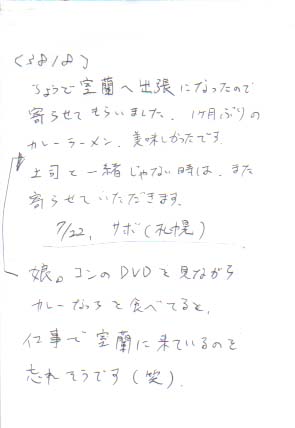 (38/8)
ちょうど室蘭へ出張になったので
寄らせてもらいました。1ヶ月ぶりの
カレーラーメン、美味しかったです。
上司と一緒じゃない時は、また
寄らせていただきます。
7/22, サボ(札幌)
娘。コンのDVDを見ながら
カレーなっちを食べてると、
仕事で室蘭に来ているのを
忘れそうです(笑)。